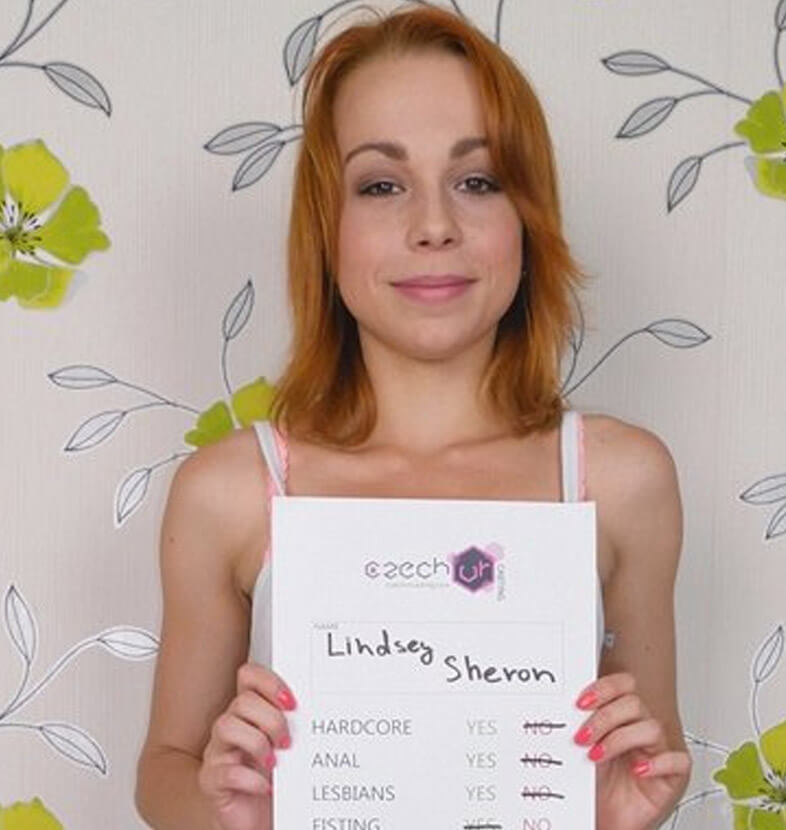 czech vr
CASTING
NAME
Lindsey
Sheron
HARDCORE YES NO
ANAL YES NO
LESBIANS YES NO
FISTING YES NO